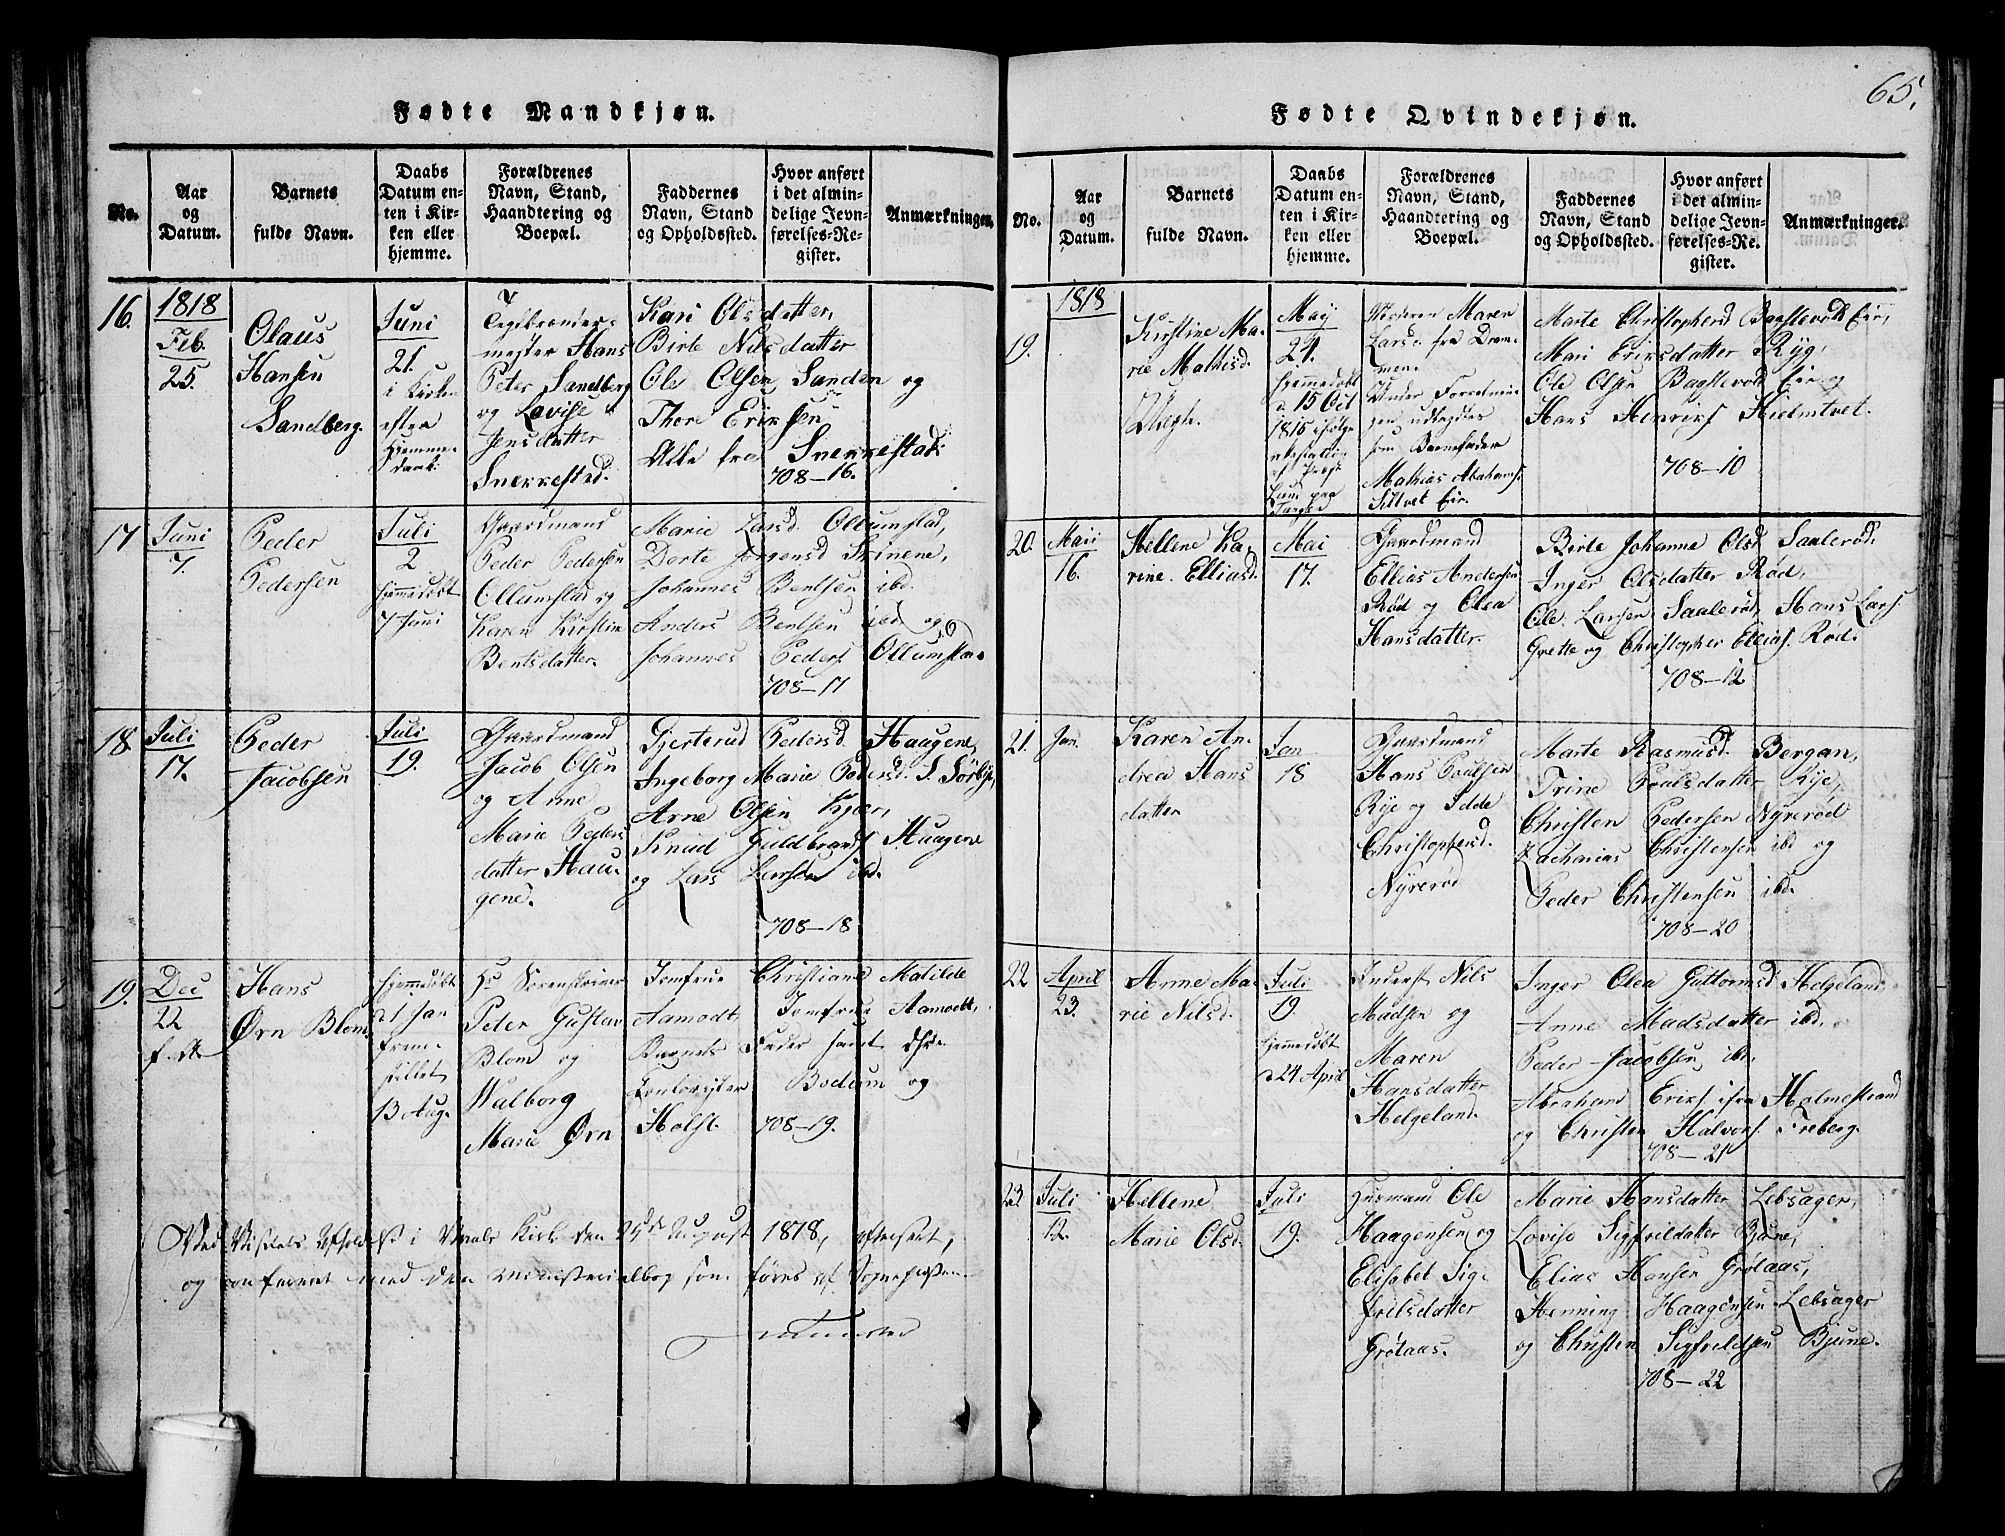 65.
Fødte Mandkjøn.
No.
Aar og Datum.
Barnets fulde Navn.
Daabs Datum enten i Kirken eller hjemme.
Forældrenes Navn, Stand, Haandtering og Boepæl.
Faddernes Navn, Stand og Opholdssted.
Hvor anført i det almindelige Jevnførelses-Register.
Anmærkninger.
16.
1818
Feb.
25.
Olaus
Hansen
Sandberg.
Juni
21.
i Kirken
efter
Hjemme-
daab.
Teglbrænder-
mester Hans
Peter Sandberg
og Lovise
Jensdatter
Snekkestad.
Kari Olsdatter,
Birte Nilsdatter
Ole Olsen Sanden og
Thore Eriksen
Alle fra Snekkestad.
708-16.
17
Juni
7.
Peder
Pedersen
Juli
2
hjemmedøbt
7 Juni
Gaardmand
Peder Pedersen
Ollumstad og
Karen Kirstin
Bentsdatter.
Marie Larsd. Ollumstad,
Dorte Jørgensd Skinene,
Johannes Bentsen ibd.
Anders Bentsen ibd og
Johannes Peders. Ollumstad
708-17
18
Juli
17.
Peder
Jacobsen
Juli
19.
Gaardmand
Jacob Olsen
og Anne
Marie Peders
datter Hau-
gene.
Gjertrud Pedersd. Haagene,
Ingeborg Marie Pedersd. S. Sørbye,
Arne Olsen Kjær,
Knud Guldbrands. Haagene
og Lars Larsen ibd.
708-18
19.
Dec
22
Hans
Ørn Blom.
hjemmedøbt
21 Jan
frem-
stillet
13 Aug.
Hr Sorenskriver
Peter Gustav
Blom og
Walborg
Marie Ørn
Jomfrue Christiane Matilde
Aamodt, Jomfrue Aamodt,
Barnets Fader samt Hr.
Bodum og
Holst.
708-19.
Ved Visitats afholdelse i Kirke den 25de August 1818, efterseet,
og confereret med den Ministerialbog som føres af Sognepræsten
Fødte Qvindekjøn.
No.
Aar og Datum.
Barnets fulde Navn.
Daabs Datum enten i Kirken eller hjemme.
Forældrenes Navn, Stand, Haandtering og Boepæl.
Faddernes Navn, Stand og Opholdssted.
Hvor anført i det almindelige Jevnførelses-Register.
Anmærkninger.
19.
1818
Kirstine Ma-
rie Mathisd.
Uægte.
Maij
24.
hjemmedøbt
d. 15 Oct
1815 ifølge
af Præst
Lund paa
Moderen Maren
Larsd. fra Dram-
men.
Under Forretnin-
gen udlagdes
som Barnefader
Mathias Abrahams.
Siltvet Eir.
Marte Christophersd Bagstevold Eir,
Mari Eriksdatter Ryg,
Ole Olsen Bagstevold Eir og
Hans Henriks. Hielmtvet.
708-10
20.
Mai
16.
Hellene Ka-
rine Elliasd.
Mai
17.
Gaardmand
Ellias Andersen
Rød og Olea
Hansdatter.
Birte Johanne Olsd Saalerød.
Inger Olsdatter Rød,
Ole Larsen Saalerød, Hans Lars.
Grette og Christopher Ellias. Rød.
708-12
21.
Jan.
Karen An-
drea Hans
datter
Jan
18
Gaardmand
Hans Poulsen
Rye og Idde
Christophersd.
Nyrerød
Marte Rasmusd. Bergan,
Trine Poulsdatter Rye,
Christen Pedersen Nyrerød
Zacharias Christensen ibd og
Peder Christensen ibd.
708-20
22
April
23.
Anne Ma-
rie Nilsd.
Juli
19.
hjemmedøbt
d. 24 April
Inderst Nils
Madsen og
Maren
Hansdatter
Helgeland.
Inger Olea Guttormsd Helgeland
Anne Madsdatter ibd.
Peder Jacobsen ibd.
Abraham Eriks. ifra Holmestrand
og Christen Halvors. Freberg.
708-21
23
Juli
12.
Hellene
Marie Olsd.
Juli
19.
Husmand Ole
Haagensen og
Elisabet Sig-
frilsdatter
Grøtaas.
Marie Hansdatter Lebsager,
Lovise Sigfreldatter Bjune,
Elias Hansen Grøtaas,
Henning Haagensen Lebsager
og Christen Sigfreldsen Bjune.
708-22